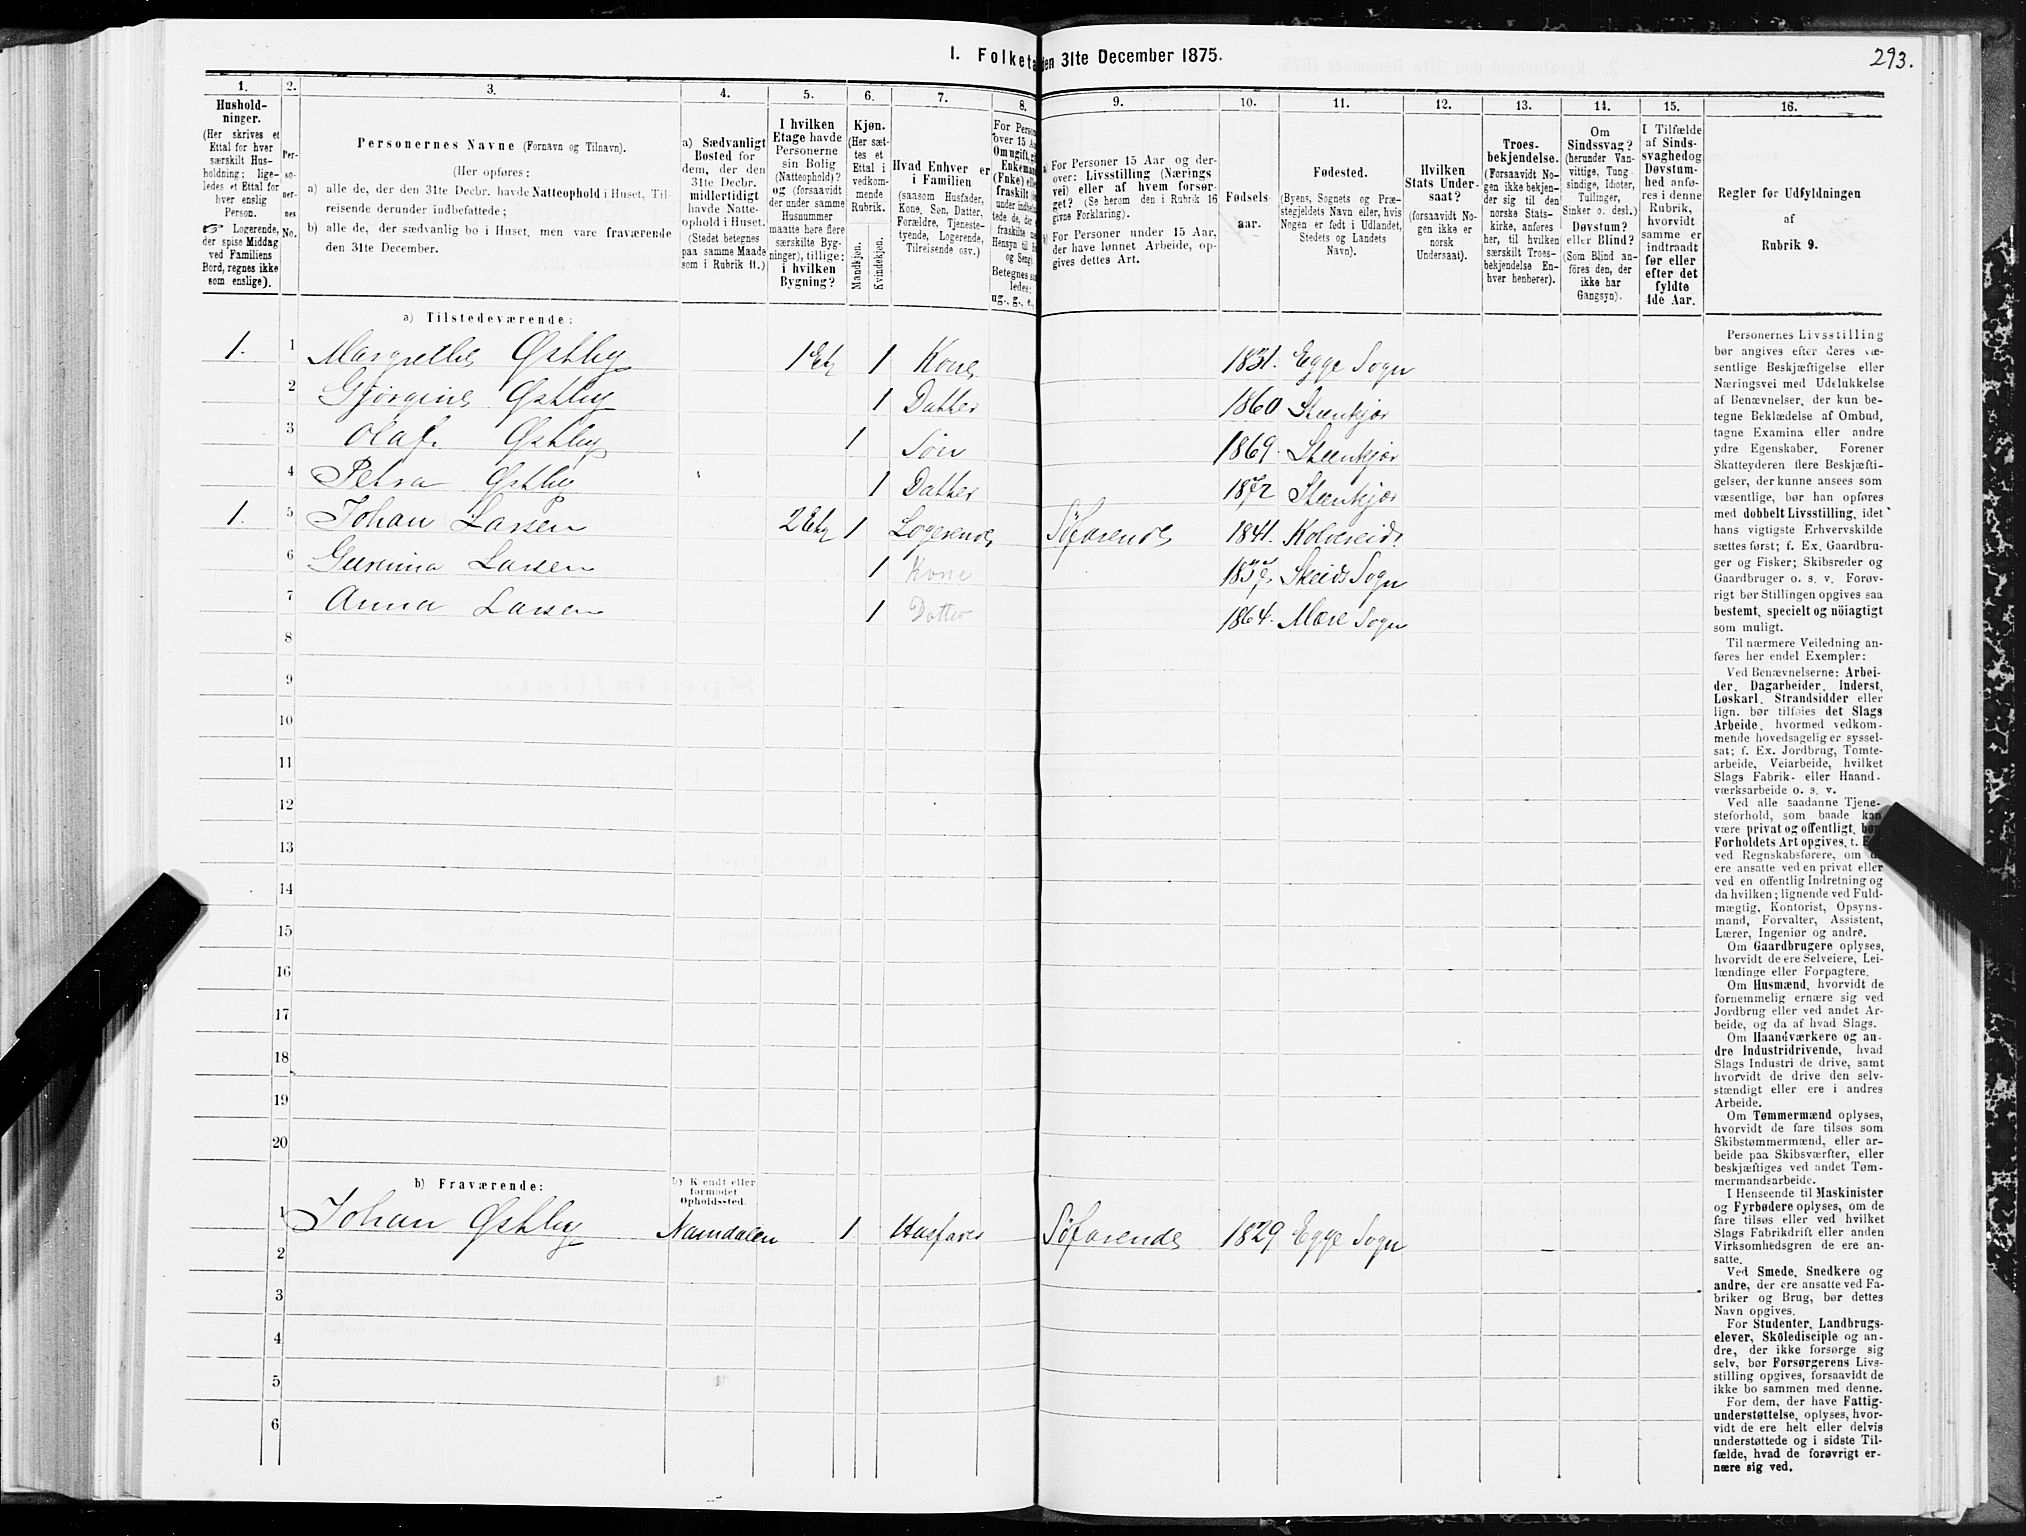 293.
I. Folketa
den 31te December 1875.
1.
Hushold-
ninger.
(Her skrives et
Ettal for hver
særskilt Hus-
holdning; lige-
ledes et Ettal for
hver enslig
Person.
☞ Logerende,
der spise Middag
ved Familiens
Bord, regnes ikke
som enslige).
2.
Per-
so-
ner-
nes
No.
3.
Personernes Navne (Fornavn og Tilnavn).
(Her opføres:
a) alle de, der den 31te Decbr. havde Natteophold i Huset, Til-
reisende derunder indbefattede;
b) alle de, der sædvanlig bo i Huset, men vare fraværende
den 31te December.
4.
a) Sædvanligt
Bosted for
dem, der den
31te Decbr.
midlertidigt
havde Natte-
ophold i Huset.
(Stedet betegnes
paa samme Maade
som i Rubrik 11.)
5.
I hvilken
Etage havde
Personerne
sin Bolig
(Natteophold)?
og (forsaavidt
der under samme
Husnummer
maatte høre flere
særskilte Byg-
ninger), tillige:
i hvilken
Bygning?
6.
Kjøn.
(Her sæt-
tes et
Ettal i
vedkom-
mende
Rubrik.
Mandkjøn.
Kvindekjøn.
7.
Hvad Enhver er
i Familien
(saasom Husfader,
Kone, Søn, Datter,
Forældre, Tjeneste-
tyende, Logerende,
Tilreisende osv.)
8.
For Person
over 15 Aa
Om ugift, g
Enkemand
(Enke) elle
fraskilt
under indbe
tede de, de
fraskilte
Hensyn til B
og Seng).
Betegnes saa
ledes:
ug., g., e.,
9.
a) For Personer 15 Aar og der-
over: Livsstilling (Nærings
vei) eller af hvem forsør-
get? (Se herom den i Rubrik 16
givne Forklaring).
b) For Personer under 15 Aar,
der have lønnet Arbeide, op-
gives dettes Art.
10.
Fødsels-
aar.
11.
Fødested.
(Byens, Sognets og Præ-
stegjeldets Navn eller, hvis
Nogen er født i Udlandet,
Stedets og Landets
Navn).
12.
Hvilken
Stats Under-
saat?
(forsaavidt No-
gen ikke er
norsk
Undersaat).
13.
Troes-
bekjendelse.
(Forsaavidt No-
gen ikke bekjen-
der sig til den
norske Stats-
kirke, anføres
her, til hvilken
særskilt Troes-
bekjendelse En-
hver henhører).
14.
Om
Sindssvag?
(herunder Van-
vittige, Tung-
sindige, Idioter,
Tullinger,
Sinker o. desl.)
Døvstum?
eller Blind?
(Som Blind an-
føres den, der
ikke har
Gangsyn).
15.
I Tilfælde
af Sinds-
svaghed og
Døvstum-
hed anfø-
res i denne
Rubrik,
hvorvidt
samme er
indtraadt
før eller
efter det
fyldte
4de Aar.
16.
Regler for Udfyldningen
af
Rubrik 9.
a) Tilstedeværende:
1. 1 Margrethe Østby 1 Etg 1 Kone 1831. Egge Sogn
2 Gjørgine Østby 1 Datter 1860 Steenkjær
3 Olaf Østby 1 Søn 1869. Steenkjær
4 Petra Østby 1 Datter 1872 Steenkjær
1. 5 Johan Larsen 2 Etg 1 Logerende Søfarende 1841. Kolvereid.
6 Larsen 1 Kone Skeids Sogn
7 Anna Larsen 1 Datter 1864. Mære Sogn
8
9
10
11
12
13
14
15
16
17
18
19
20
b) Fraværende:
b) Kjendt eller
formodet
Opholdssted.
1 Johan Østby Namdalen 1 Husfader Søfarende 1829 Egge Sogn
2
3
4
5
6
Personernes Livsstilling
bør angives efter deres væ-
sentlige Beskjæftigelse eller
Næringsvei med Udelukkelse
af Benævnelser, der kun be-
tegne Beklædelse af Ombud,
tagne Examina eller andre
ydre Egenskaber. Forener
Skatteyderen flere Beskjæfti-
gelser, der kunne ansees som
væsentlige, bør han opføres
med dobbelt Livsstilling, idet
hans vigtigste Erhvervskilde
sættes først; f. Ex. Gaardbru-
ger og Fisker; Skibsreder og
Gaardbruger o. s. v. Forøv-
rigt bør Stillingen opgives saa
bestemt, specielt og nöiagtigt
som muligt.
Til nærmere Veiledning an-
føres her endel Exempler:
Ved Benævnelserne: Arbei-
der, Dagarbeider, Inderst,
Løskarl, Strandsidder eller
lign. bør tilføies det Slags
Arbeide, hvormed vedkom-
mende hovedsagelig er syssel-
sat; f. Ex. Jordbrug, Tomte-
arbeide, Veiarbeide, hvilket
Slags Fabrik- eller Haand-
værksarbeide o. s. v.
Ved alle saadanne Tjene-
steforhold, som baade kan
være privat og offentligt, bør
Forholdets Art opgives, t. E
ved Regnskabsførere, om d
ere ansatte ved en privat eller
ved en offentlig Indretning og
da hvilken; lignende ved Fuld-
mægtig, Kontorist, Opsyns-
mand, Forvalter, Assistent,
Lærer, Ingeniør og andre.
Om Gaardbrugere oplyses,
hvorvidt de ere Selveiere, Lei-
lændinge eller Forpagtere.
Om Husmænd, hvorvidt de
fornemmelig ernære sig ved
Jordbrug eller ved andet Ar-
beide, og da af hvad Slags.
Om Haandværkere og an-
dre Industridrivende, hvad
Slags Industri de drive, samt
hvorvidt de drive den selv-
stændigt eller ere i andres
Arbeide.
Om Tømmermænd oplyses,
hvorvidt de fare tilsøs som
Skibstømmermænd, eller ar-
beide paa Skibsværfter, eller
beskjæftiges ved andet Tøm-
mermandsarbeide.
I Henseende til Maskinister
og Fyrbødere oplyses, om de
fare tilsøs eller ved hvilket
Slags Fabrikdrift eller anden
Virksomhedsgren de ere an-
satte.
Ved Smede, Snedkere og
andre, der ere ansatte ved Fa-
briker og Brug, bør dettes
Navn opgives.
For Studenter, Landbrugs-
elever, Skoledisciple og an-
dre, der ikke forsørge sig
selv, bør Forsørgerens Livs-
stilling opgives, forsaavidt de
ikke bo sammen med denne.
For dem, der have Fattig-
understøttelse, oplyses, hvor-
vidt de ere helt eller delvis
understøttede og i sidste Til-
fælde, hvad de forøvrigt er-
nære sig ved.